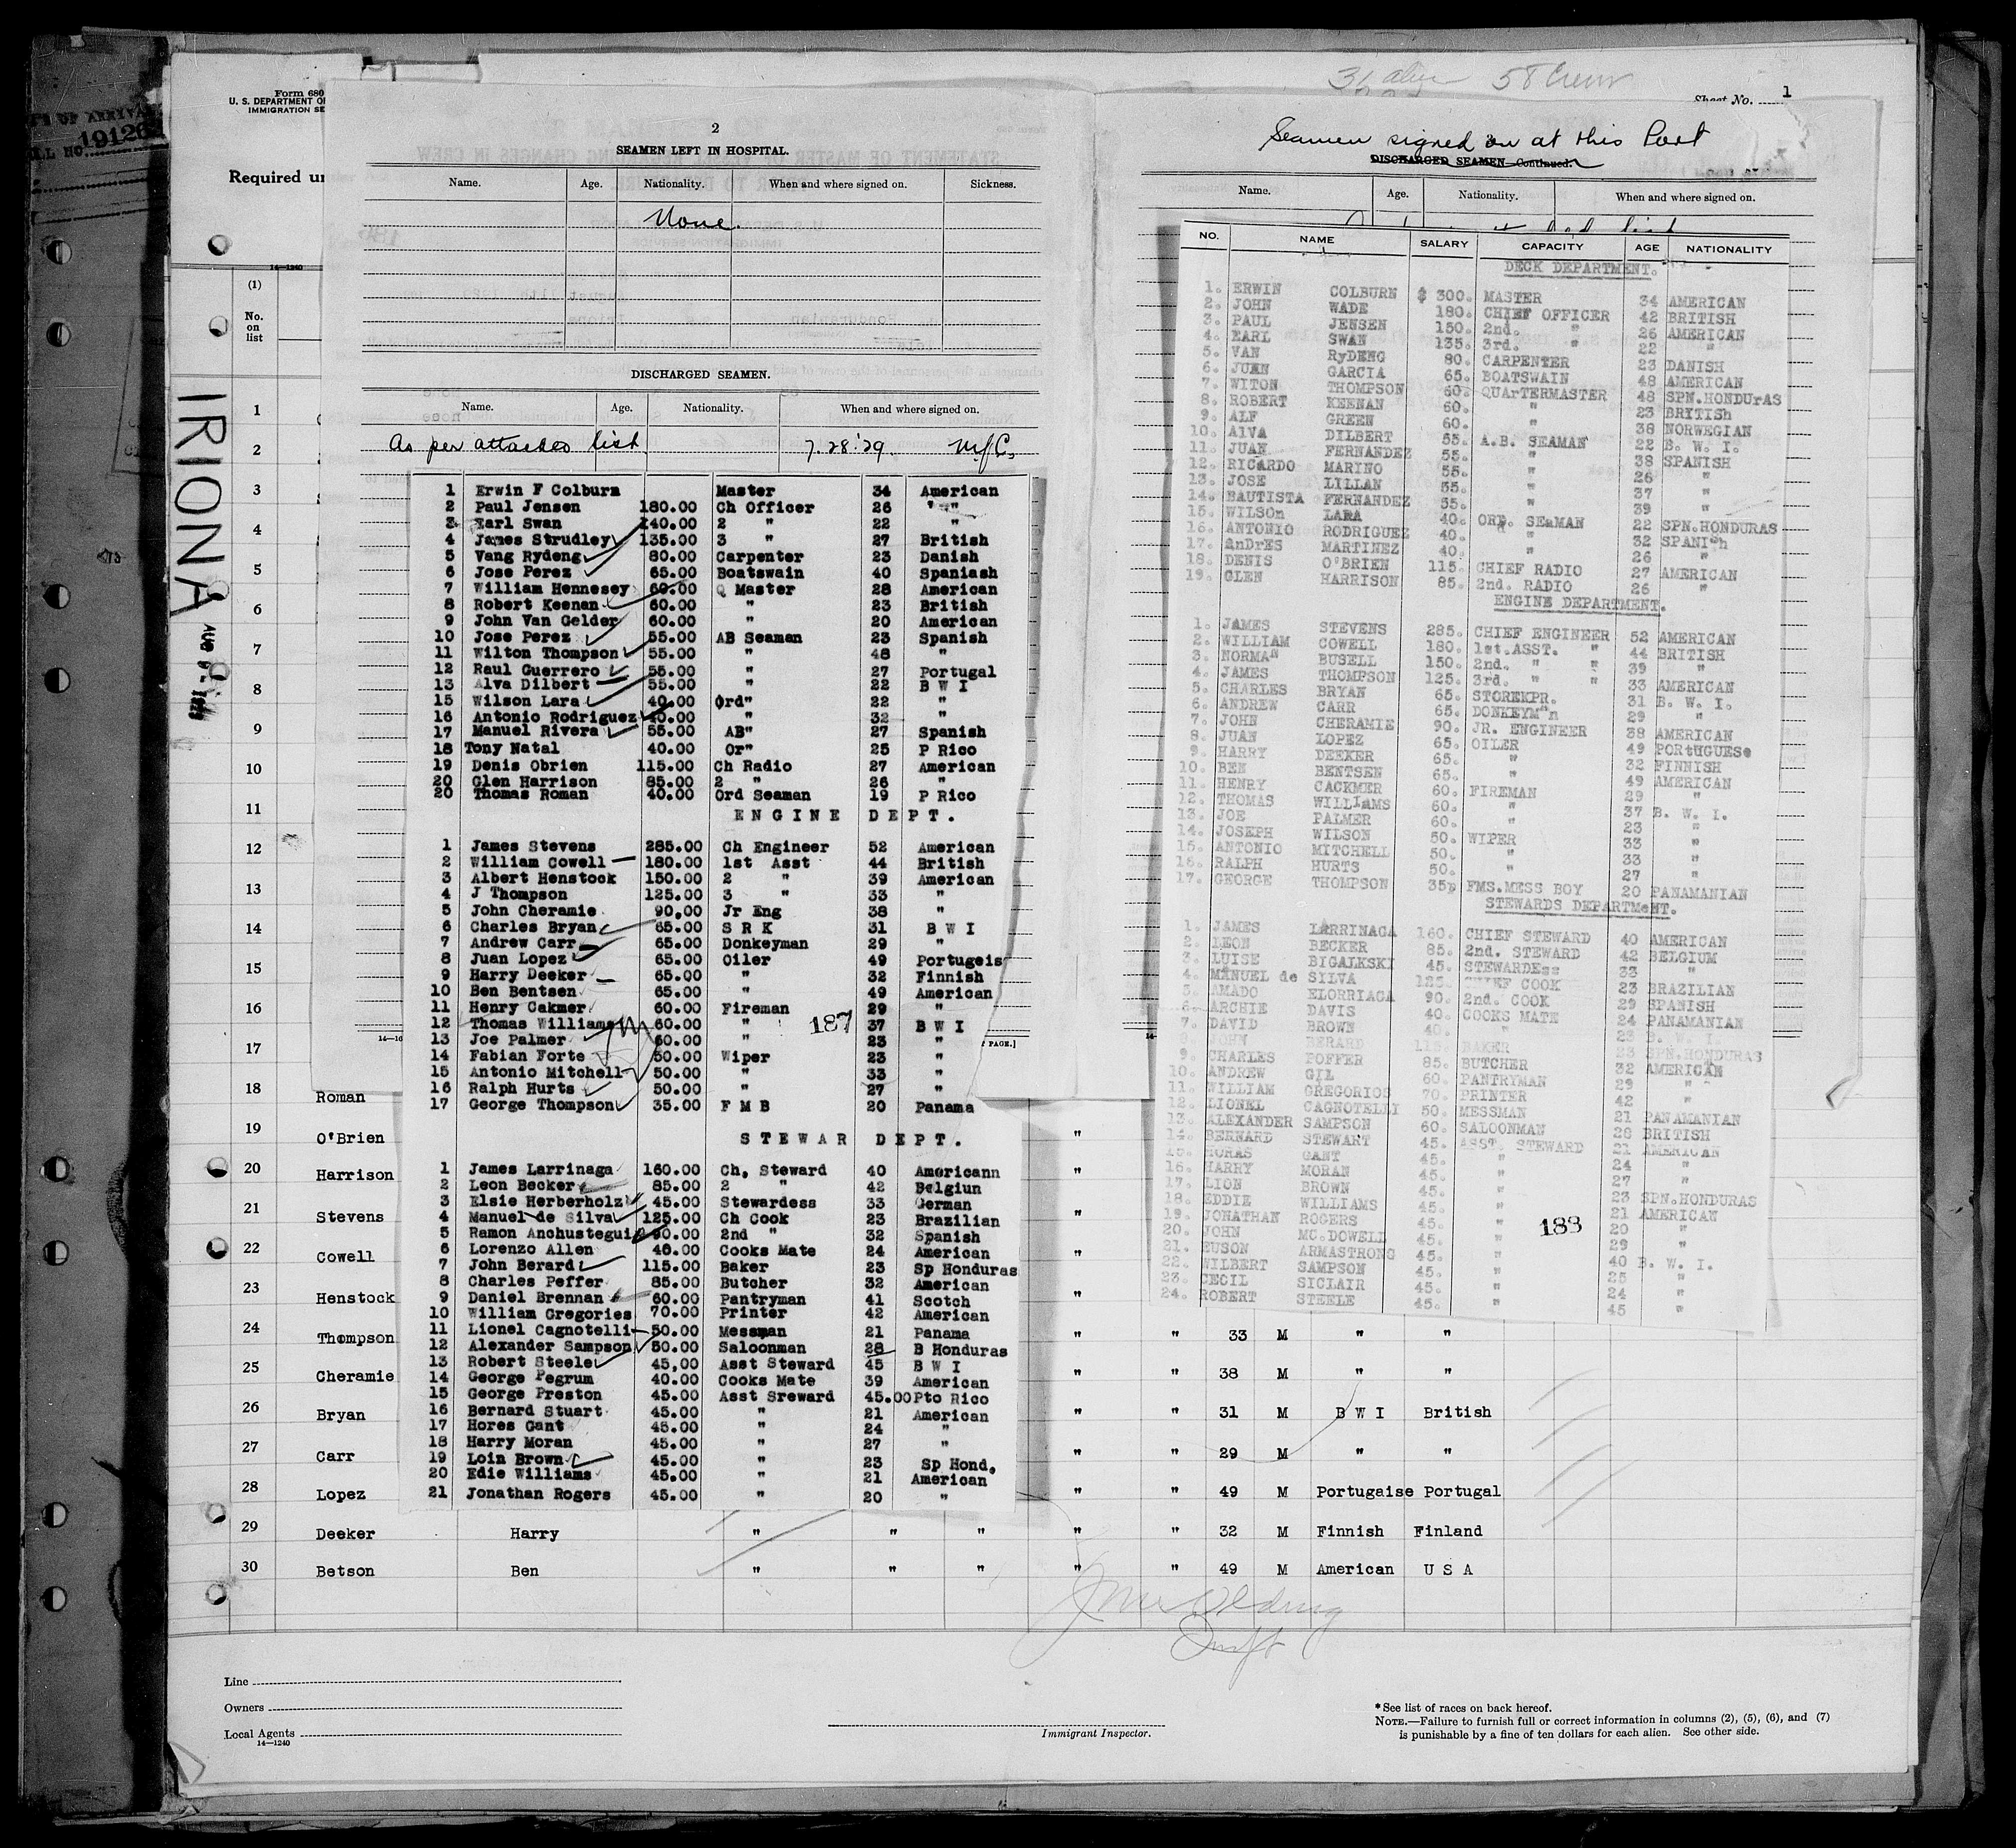 Form 680
U. S. DEPARTMENT OF
IMMIGRATION SE
19126
Required un
14—1240
(1)
No.
on
list
IRIONA
2
SEAMEN LEFT IN HOSPITAL.
Name. Age. Nationality. When and where signed on. Sickness.
None.
DISCHARGED SEAMEN.
Name. Age. Nationality. When and where signed on.
As per attached list. 7.28.'29.
1 Erwin F Colburn Master 34 American
2 Paul Jensen 180.00 Ch Officer 26 "
3 Earl Swan 140.00 2 " 22 "
4 James Strudley 135.00 3 " 27 British
5 Vang Rydeng 80.00 Carpenter 23 Danish
6 Jose Perez 65.00 Boatswain 40 Spaniash
7 William Hennesey 60.00 Q Master 28 American
8 Robert Keenan 60.00 " 23 British
9 John Van Gelder 60.00 " 20 American
10 Jose Perez 55.00 AB Seaman 23 Spanish
11 Wilton Thompson 55.00 " 48 "
12 Raul Guerrero 55.00 " 27 Portugal
13 Alva Dilbert 55.00 " 22 B W I
15 Wilson Lara 40.00 Ord" 22 "
16 Antonio Rodriguez 40.00 " 32 "
17 Manuel Rivera 55.00 AB" 27 Spanish
18 Tony Natal 40.00 Or" 25 P Rico
19 Denis Obrien 115.00 Ch Radio 27 American
20 Glen Harrison 85.00 2 " 26 "
20 Thomas Roman 40.00 Ord Seaman 19 P Rico
ENGINE DEPT.
1 James Stevens 285.00 Ch Engineer 52 American
2 William Cowell 180.00 1st Asst 44 British
3 Albert Henstock 150.00 2 " 39 American
4 J Thompson 125.00 3 " 33 "
5 John Cheramie 90.00 Jr Eng 38 "
6 Charles Bryan 65.00 S R K 31 B W I
7 Andrew Carr 65.00 Donkeyman 29 "
8 Juan Lopez 65.00 Oiler 49 Portugeis
9 Harry Deeker 65.00 " 32 Finnish
10 Ben Bentsen 65.00 " 49 American
11 Henry Cakmer 60.00 Fireman 29 "
12 Thomas Williams 60.00 " 37 B W I
13 Joe Palmer 60.00 " 23 "
14 Fabian Forte 50.00 Wiper 23 "
15 Antonio Mitchell 50.00 " 33 "
16 Ralph Hurts 50.00 " 27 "
17 George Thompson 35.00 F M B 20 Panama
187
STEWAR DEPT.
1 James Larrinaga 160.00 Ch. Steward 40 Americann
2 Leon Becker 85.00 2 " 42 Belgiun
3 Elsie Herberholz 45.00 Stewardess 33 German
4 Manuel de Silva 125.00 Ch Cook 23 Brazilian
5 Ramon Anchustegui 90.00 2nd " 32 Spanish
6 Lorenzo Allen 40.00 Cooks Mate 24 American
7 John Berard 115.00 Baker 23 Sp Honduras
8 Charles Peffer 85.00 Butcher 32 American
9 Daniel Brennan 60.00 Pantryman 41 Scotch
10 William Gregories 70.00 Printer 42 American
11 Lionel Cagnotelli 50.00 Messman 21 Panama
12 Alexander Sampson 50.00 Saloonman 28 B Honduras
13 Robert Steele 45,00 Asst Steward 45 B W I
14 George Pegrum 40.00 Cooks Mate 39 American
15 George Preston 45.00 Asst Sreward 45.00 Pto Rico
16 Bernard Stuart 45.00 " 21 American
17 Hores Gant 45.00 " 24 "
18 Harry Moran 45.00 " 27 "
19 Loin Brown 45.00 " 23 Sp Hond,
20 Edie Williams 45.00 " 21 American
21 Jonathan Rogers 45.00 " 20 "
58 Crew
Sheet No. 1
Seamen signed on at this Port
DISCHARGED SEAMEN—Continued.
Name. Age. Nationality. When and where signed on.
NO. NAME SALARY CAPACITY AGE NATIONALITY
DECK DEPARTMENT.
1. ERWIN COLBURN $ 300. MASTER 34 AMERICAN
2. JOHN WADE 180. CHIEF OFFICER 42 BRITISH
3. PAUL JENSEN 150. 2nd. " 26 AMERICAN
4. EARL SWAN 135. 3rd. " 22 "
5. VAN RyDENG 80. CARPENTER 23 DANISH
6. JUAN GARCIA 65. BOATSWAIN 48 AMERICAN
7. WITON THOMPSON 60. QUArTERMASTER 48 SPN.HONDUrAS
8. ROBERT KEENAN 60. " 23 BRITISh
9. ALF GREEN 60. " 38 NORWEGIAN
10. AlVA DILBERT 55. A.B. SEAMAN 22 B. W. I.
11. JUAN FERNANDEZ 55. " 38 SPANISH
12. RICARDO MARINO 55. " 26 "
13. JOSE LILLAN 55. " 37 "
14. BAUTISTA FERNANDEZ 55. " 39 "
15. WILSOn LARA 40. ORD. SEaMAN 22 SPN.HONDURAS
16. ANTONIO RODRIGUEZ 40. " 32 SPANISh
17. anDrES MARTINEZ 40. " 26 "
18. DENIS O'BRIEN 115. CHIEF RADIO 27 AMERICAN
19. GLEN HARRISON 85. 2nd. RADIO 26 "
ENGINE DEPARTMENT.
1. JAMES STEVENS 285. CHIEF ENGINEER 52 AMERICAN
2. WILLIAM COWELL 180. 1st.ASST. " 44 BRITISH
3. NORMAn BUSELL 150. 2nd. " " 39 "
4. JAMES THOMPSON 125. 3rd. " " 33 AMERICAN
5. CHARLES BRYAN 65. STOREKPR. 31 B. W. I.
6. ANDREW CARR 65. DONKEYMan 29 "
7. JOHN CHERAMIE 90. JR. ENGINEER 38 AMERICAN
8. JUAN LOPEZ 65. OILER 49 PORtUGUESe
9. HARRY DEEKER 65. " 32 FINNISH
10. BEN BENTSEN 65. " 49 AMERICAN
11. HENRY CACKMER 60. FIREMAN 29 "
12. THOMAS WILLIAMS 60. " 37 B. W. I.
13. JOE PALMER 60. " 23 "
14. JOSEPH WILSON 50. WIPER 33 "
15. ANTONIO MITCHELL 50. " 33 "
16. RALPH HURTS 50. " 27 "
17. GEORGE THOMPSON 35. FMS.MESS BOY 20 PANAMANIAN
STEWARDS DEPARTMeNT.
1. JAMES LARRINAGA 160. CHIEF STEWARD 40 AMERICAN
2. LEON BECKER 85. 2nd. STEWARD 42 BELGIUM
3. LUISE BIGALKSKI 45. STEWARDEss 33 "
4. MANUEL de SILVA 125. CHIEF COOK 23 BRAZILIAN
5. AMADO ELORRIAGA 90. 2nd. COOK 29 SPANISH
6. ARCHIE DAVIS 40. COOKS MATE 24 PANAMANIAN
7. DAVID BROWN 40. " 23 B. W. I.
8. JOHN BERARD 115. BAKER 23 SPN.HONDURAS
9. CHARLES POFFER 85. BUTCHER 32 AMERICAN
10. ANDREW GIL 60. PANTRYMAN 29 "
11. WILLIAM GREGORIOS 70. PRINTER 42 "
12. LIONEL CAGNOTELLI 50. MESSMAN 21 PANAMANIAN
13. ALEXANDER SAMPSON 60. SALOONMAN 28 BRITISH
14. BERNARD STEWART 45. ASST. STEWARD 21 AMERICAN
15. HORAS GANT 45. " 24 "
16. HARRY MORAN 45. " 27 "
17. LION BROWN 45. " 23 SPN.HONDURAS
18. EDDIE WILLIAMS 45. " 21 AMERICAN
19. JONATHAN ROGERS 45. " 20 "
20. JOHN MC.DOWELL 45. " 29 "
21. EUSON ARMSTRONG 45. " 40 B. W. I.
22. WILBERT SAMPSON 45. " 25 "
23. CECIL SICLAIR 45. " 24 "
24. ROBERT STEELE 45. " 45 "
183
1
2
3
4
5
6
7
8
9
10
11
12
13
14
15
16
17
18 Roman
19 O'Brien "
20 Harrison "
21 Stevens "
22 Cowell "
23 Henstock "
24 Thompson " " 33 M " "
25 Cheramie " " 38 M " "
26 Bryan " " 31 M B W I British
27 Carr " " 29 M " "
28 Lopez " " 49 M Portugaise Portugal
29 Deeker Harry " " " " " 32 M Finnish Finland
30 Betson Ben " " " " " 49 M American U S A
Line
Owners
Local Agents
14—1240
Immigrant Inspector.
* See list of races on back hereof.
NOTE.—Failure to furnish full or correct information in columns (2), (5), (6), and (7)
is punishable by a fine of ten dollars for each alien. See other side.